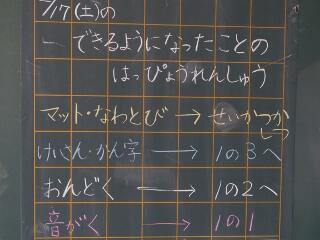 7/17(土)の
一 できるようになったことの
はっぴょうれんしゅう
マット・なわとび → せいかつか
しつ
けいさん・かん字 → 1の3へ
おんどく → 1の2へ
音がく → 1の1